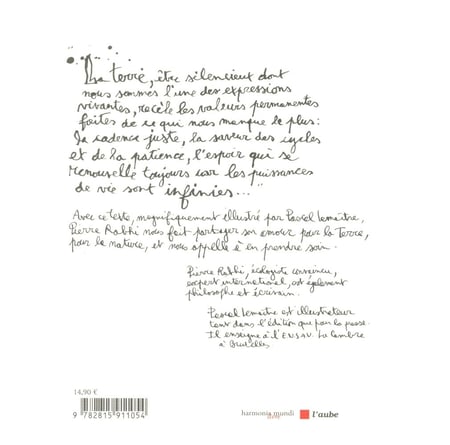 "La terre, être silencieux dont
nous sommes l'une des expressions
vivantes, recèle les valeurs permanentes
faites de ce qui nous manque le plus :
la cadence juste, la saveur des cycles
et de la patience, l'espoir qui se
renouvelle toujours car les puissances
de vie sont infinies..."
Avec ce texte, magnifiquement illustré par Pascal Lemaître,
Pierre Rabhi nous fait partager son amour pour la Terre,
pour la nature, et nous appelle à en prendre soin.
Pierre Rabhi, écologiste convaincu,
expert international, est également
philosophe et écrivain.
Pascal Lemaître est illustrateur
tant dans l'édition que pour la presse.
Il enseigne à l'ENSAV. La Cambre
à Bruxelles
14,90 €
9 782815 911054
harmonia mundi
livre
l'aube